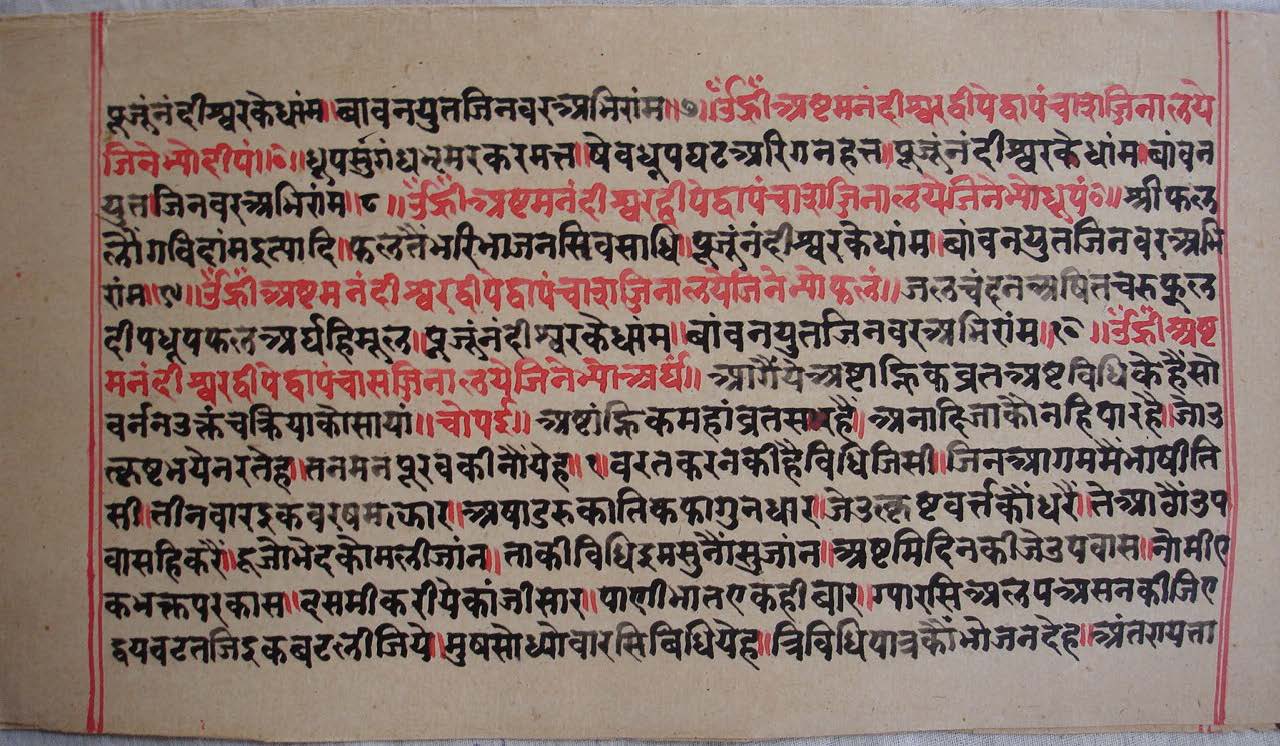 पूजूंनंदीश्वरकेधांम॥बावनयुतजिनवरअभिरांम॥७॥उँह्रीँअष्टमनंदीश्वरद्वीपेद्वापंचाशज्जिनालये
जिनेभ्योदीपं॥६॥धूपसुगंधभ्रमरकरमत्त॥षेवधूपघटअरिगनहत्त॥पूजूंनंदीश्वरकेधांम॥बांवन
युतजिनवरअभिरांम॥८॥उँह्रीँअष्टमनंदीश्वरद्वीपेद्वापंचाशज्जिनालयेजिनेभ्योधूपं६॥श्रीफल
लौंगविदांमइत्यादि॥फलतैंभरिभाजनसिवसाधि॥पूजूंनंदीश्वरकेधांम॥बांवनयुतजिनवरअभि
रांम॥९॥उँह्रीँअष्टमनंदीश्वरद्वीपेद्वापंचाशज्जिनालयेजिनेभ्योफलं॥जलचंदनअषितचरुफुल
दीपधूपफलअर्घहिमूल॥पूजूंनंदीश्वरकेधांम॥बांवनयुतजिनवरअभिरांम॥१०॥उँह्रीँअष्ट
मनंदीश्वरद्वीपेद्वापंचासज्जिनालयेजिनेभ्योअर्घं॥आगैंयेअष्टाह्निकव्रतअष्टविधिकेहैंसो
वर्ननउक्तंचक्रियाकोसायां॥चोपई॥अष्टांह्निकमहांव्रतसारहै॥अनादिजाकौनहिपारहै॥जोउ
त्कृष्टभयेनरतेह॥तनमनपूरवकीनौंयेह॥१॥वरतकरनकीहैविधिजिसी॥जिनआगममैंभाषीति
सी॥तीनवारइकवरषमझार॥अषाढरुकातिकफागुनधार॥जेउत्कृष्टवर्त्तकौंधरैं॥तेआठौंउप
वासहिकरैं॥दूजोभेदकोमलीजांन॥ताकीविधिइमसुनौंसुजांन॥अष्टमिदिनकीजेउपवास॥नौमीए
कभक्तपरकास॥दसमीकरीयेकांजीसार॥पाणीभातएकहीबार॥ग्यारसिअलपअसनकीजिए
द्वयवटतजिइकबटलीजिये॥मुषसोध्योवारसिबिधियेह॥त्रिविधिपात्रकौंभोजनदेह॥अंतरायता